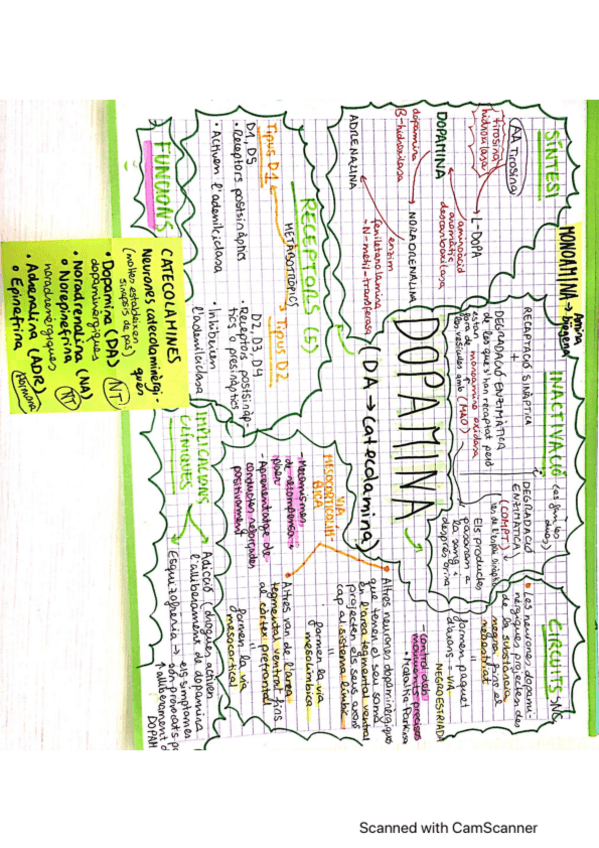 MONOAMINA → Amina biògena
DOPAMINA
(DA → catecolamina)
SÍNTESI
AA tirosina
tirosina
hidroxilasa
→ L-DOPA
aminoàcid
aromàtic
descarboxilasa
DOPAMINA
dopamina
β-hidroxilasa
NORADRENALINA
enzim
feniletanolamina
-N-metil-transferasa
ADRENALINA
INACTIVACIÓ
RECAPTACIÓ SINÀPTICA
+
DEGRADACIÓ ENZIMÀTICA
de les que s'han recaptat però
fora de
les vesícules amb (MAO)
monoamino oxidasa
DEGRADACIÓ
ENZIMÀTICA
(COMPT)
Els productes
passaran a
la sang i
després orina
CIRCUITS
• Les neurones dopami-
nèrgiques projecten des
de la substància
negra fins el
neoestriat
=
formen paquet
d'axons → VIA
NEGROESTRIADA
- control dels
moviments precisos
• Malaltia Parkison
• Altres neurones dopaminèrgiques
que tenen el seu soma
en l'àrea tegmental ventral
projecten els seus axons
cap al sistema límbic
=
formen la via
mesolímbica
• Altres van de l'àrea
tegmental ventral fins
al córtex prefrontal
=
formen la via
mesocortical
VIA
MESOCORTICOLÍM-
BICA
- Mecanismes
de recompensa i
plaer
- Aprenentatge de
conductes reforçades
positivament
RECEPTORS (5)
METABOTRÒPICS
Tipus D1
D1, D5
• Receptors postsinàptics
• Activen l'adenilciclasa
Tipus D2
D2, D3, D4
• Receptors postsinàp-
tics o presinàptics
• Inhibeixen
l'adenilciclasa
IMPLICACIONS
CLÍNIQUES
Adicció (drogues activen
l'alliberament de dopamina
Esquizofrènia → els símptomes
són provocats p
↑ alliberament d
DOPAM
FUNCIONS
CATECOLAMINES
Neurones catecolaminèrgi-
ques
(moltes estableixen
sinapsis de pas)
• Dopamina (DA) NT
dopaminèrgiques
• Noradrenalina (NA) NT
o Norepinefrina
noradrenèrgiques
• Adrenalina (ADR) Hormona
o Epinefrina
Scanned with CamScanner